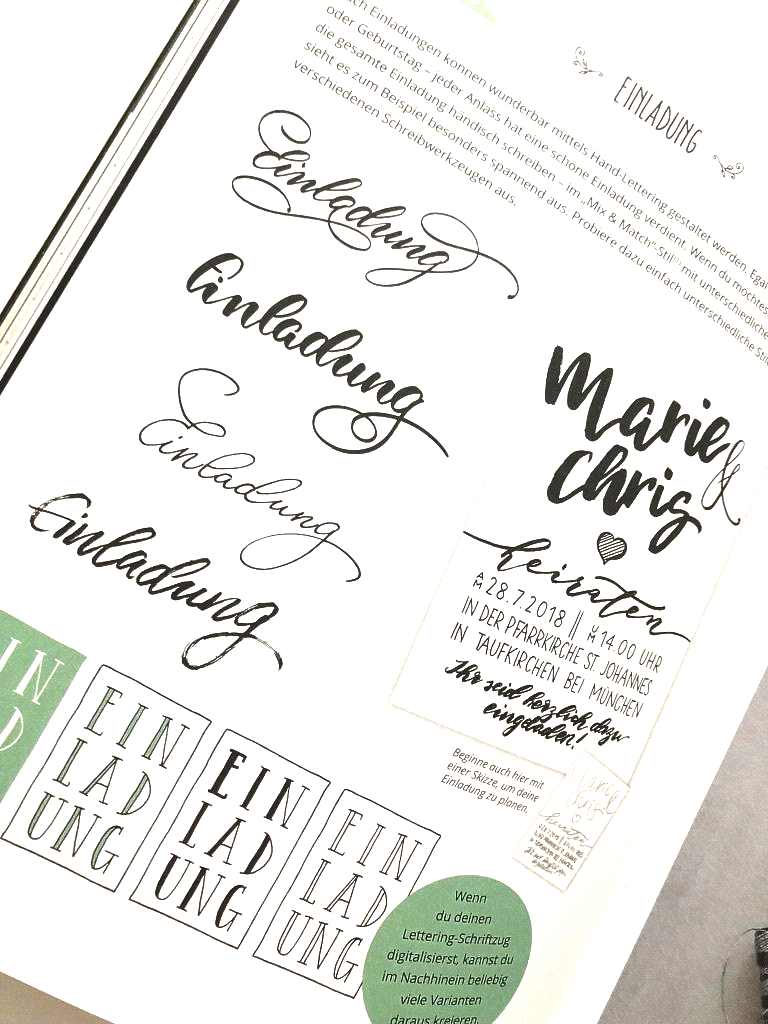 EINLADUNG
Einladungen können wunderbar mittels Hand-Lettering gestaltet werden. Egal
oder Geburtstag – jeder Anlass hat eine schöne Einladung verdient. Wenn du möchtest
die gesamte Einladung händisch schreiben – im „Mix & Match“-Stil mit unterschiedliche
sieht es zum Beispiel besonders spannend aus. Probiere dazu einfach unterschiedliche
verschiedenen Schreibwerkzeugen aus.
Einladung
Einladung
Einladung
Einladung
Marie &
Chrig
heiraten
AM 28.7.2018 || UM 14.00 UHR
IN DER PFARRKIRCHE ST. JOHANNES
IN TAUFKIRCHEN BEI MÜNCHEN
Ihr seid herzlich dazu
eingeladen!
Beginne auch hier mit
einer Skizze, um deine
Einladung zu planen.
IN
D
EIN
LAD
UNG
EIN
LAD
UNG
EIN
LAD
UNG
Wenn
du deinen
Lettering-Schriftzug
digitalisierst, kannst du
im Nachhinein beliebig
viele Varianten
daraus kreieren.